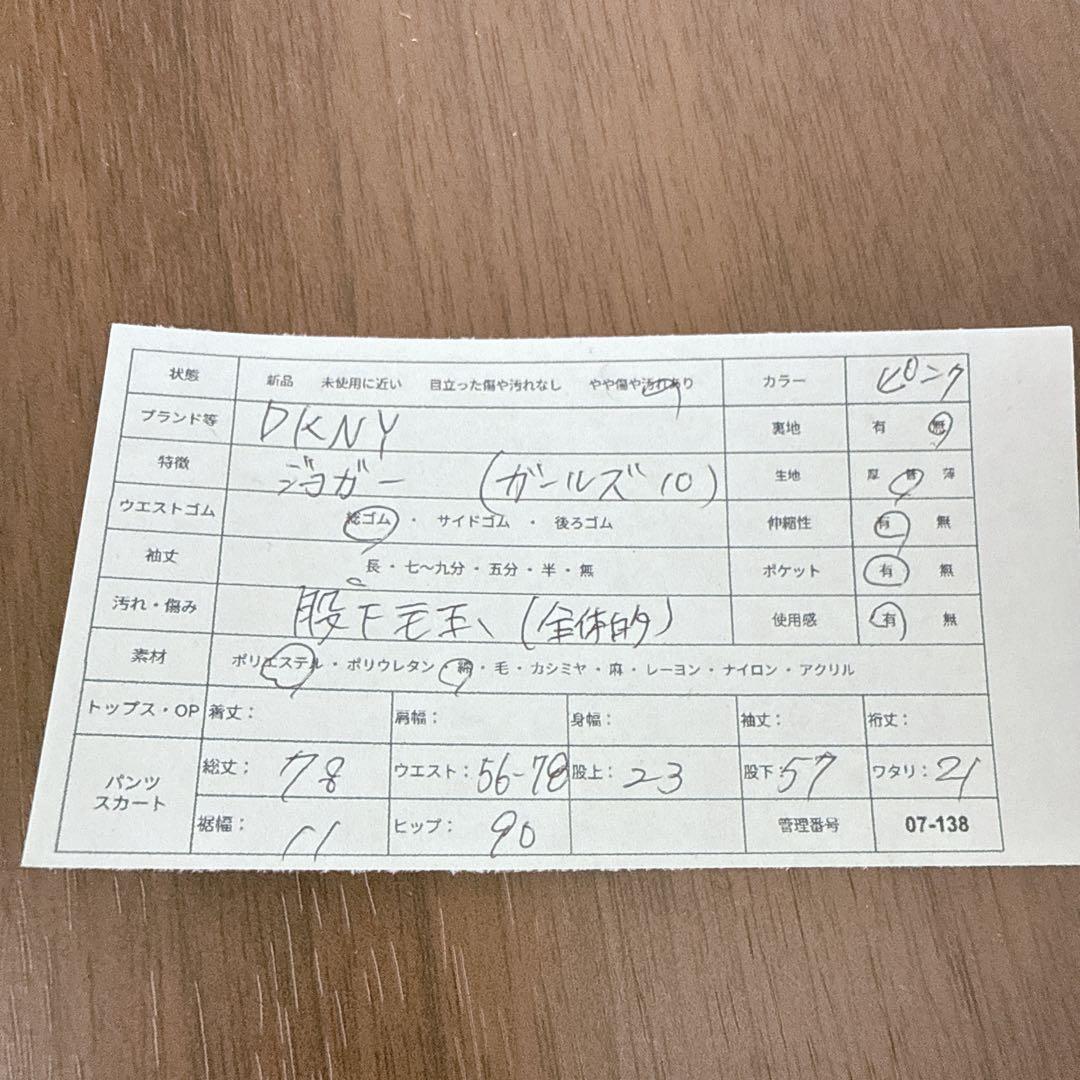 状態 新品 未使用に近い 目立った傷や汚れなし やや傷や汚れあり カラー ピンク
ブランド等 DKNY 裏地 有 無
特徴 ジョガー (ガールズ10) 生地 厚 普 薄
ウエストゴム 総ゴム・サイドゴム・後ろゴム 伸縮性 有 無
袖丈 長・七〜九分・五分・半・無 ポケット 有 無
汚れ・傷み 股下毛玉、(全体的) 使用感 有 無
素材 ポリエステル・ポリウレタン・綿・毛・カシミヤ・麻・レーヨン・ナイロン・アクリル
トップス・OP 着丈: 肩幅: 身幅: 袖丈: 裄丈:
パンツ スカート 総丈: 78 ウエスト: 56-78 股上: 23 股下: 57 ワタリ: 21
裾幅: 11 ヒップ: 90 管理番号 07-138